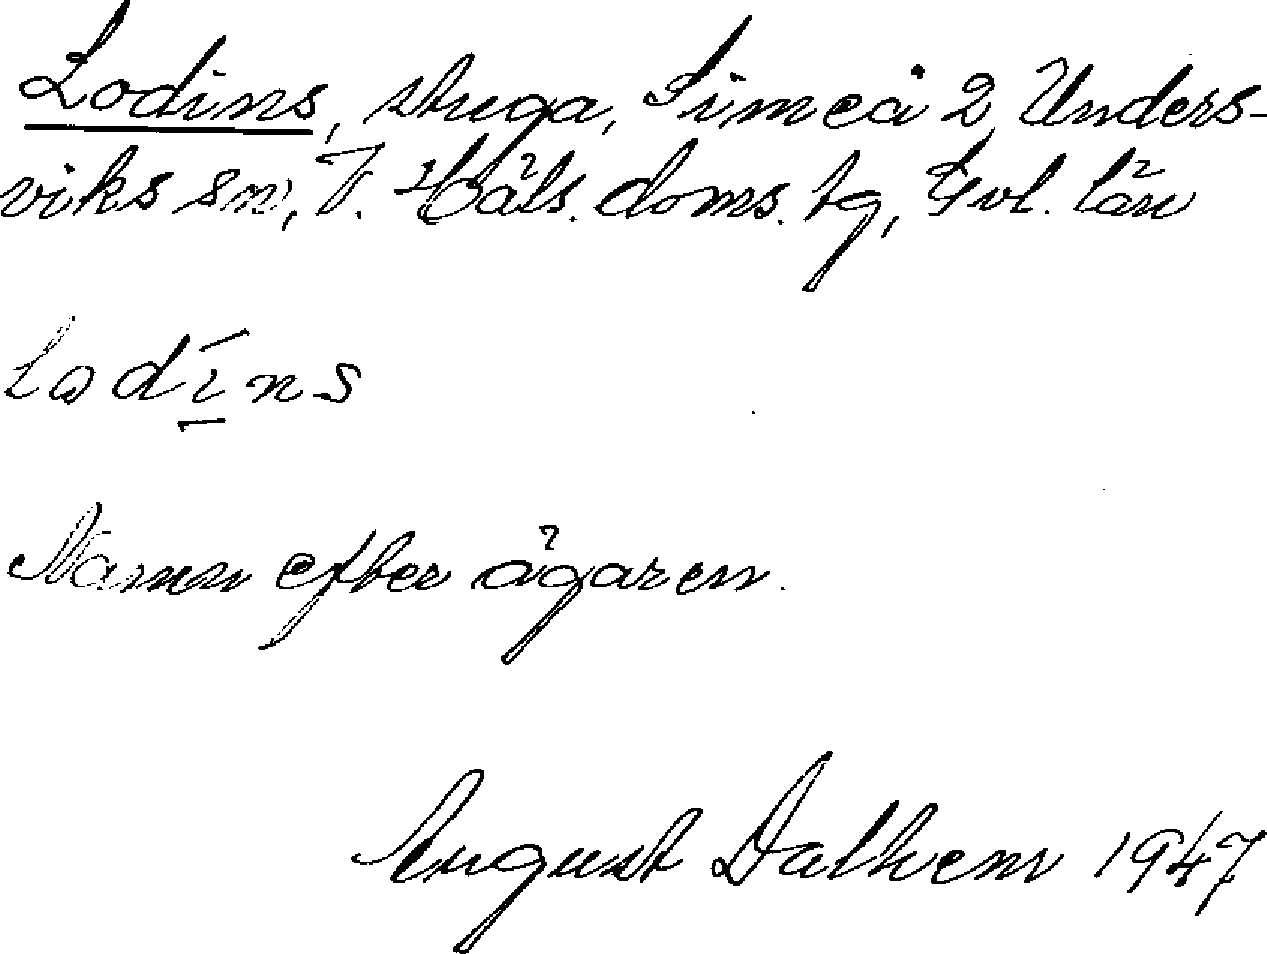 Lodins, stuga, Simeå 2, Unders-
viks sn, V. Häls. doms. tg, Gvl. län
Lodīns
Namn efter ägaren.
August Dalhem 1947